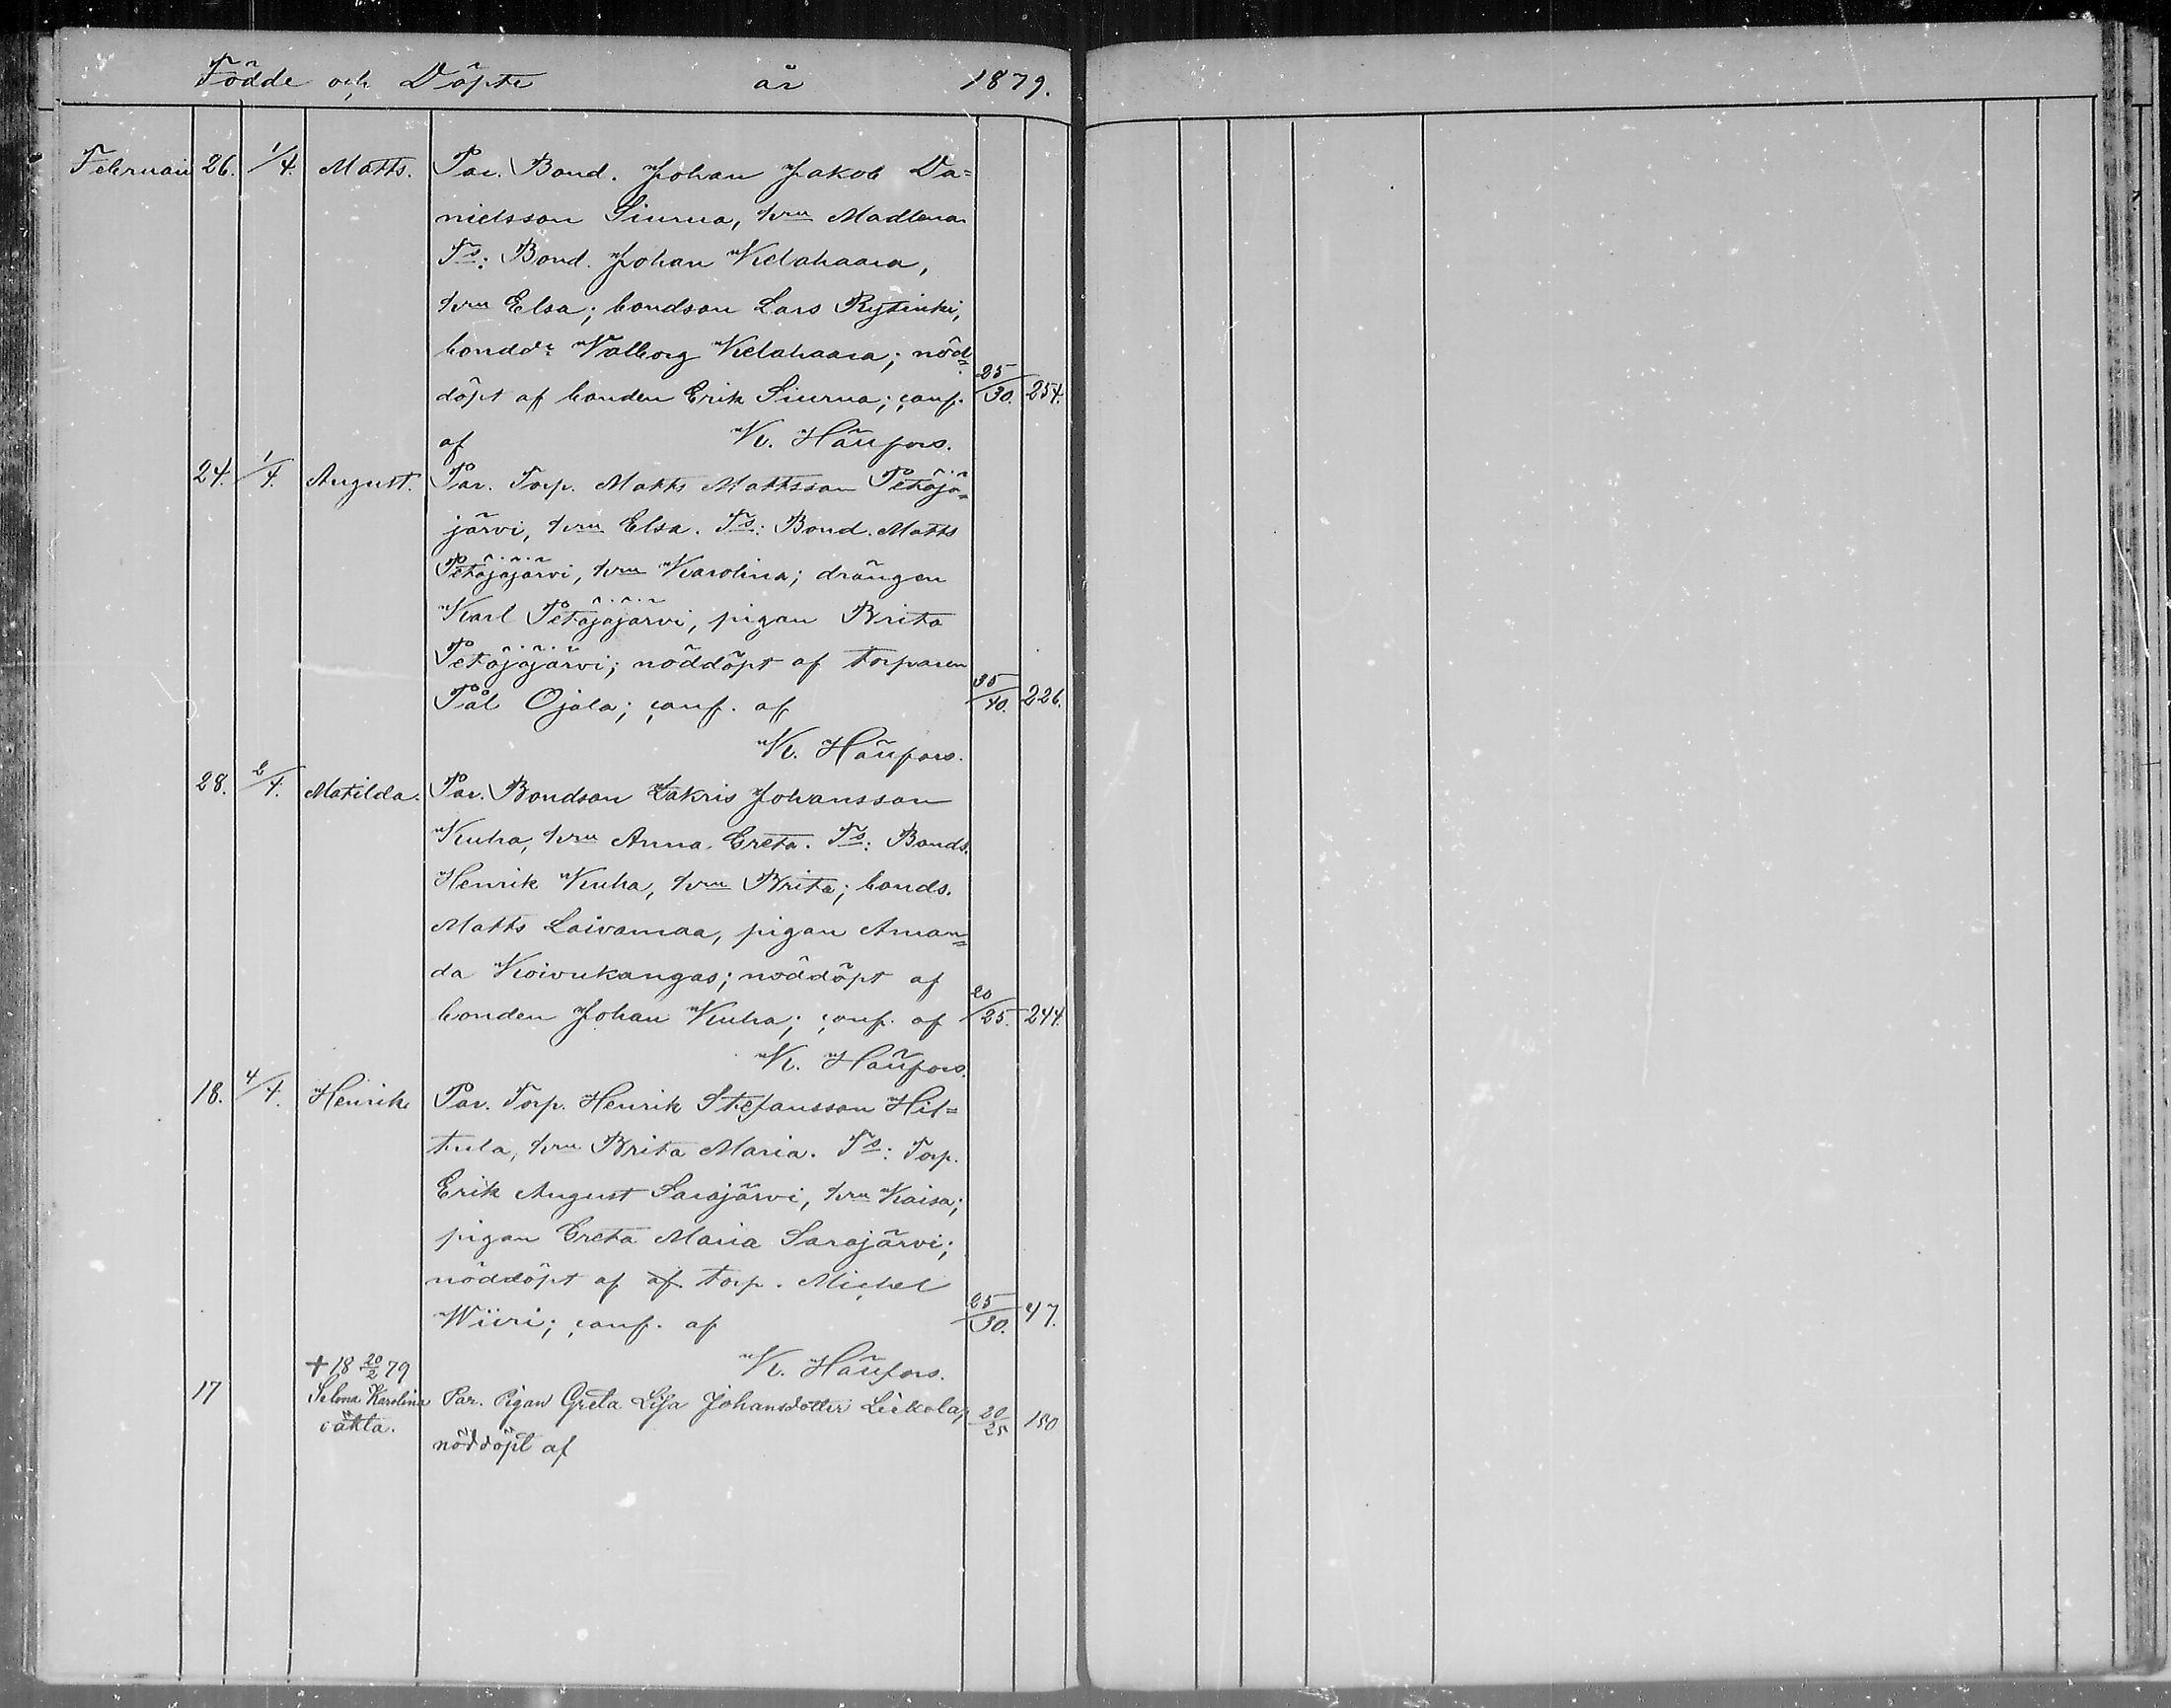 Födde och Döpte år 1879.
Februari 26. 1/4. Matts. Par. Bond. Johan Jakob Da=
nielsson Siurua, hru Madlena
Ts: Bond. Johan Kelahaara,
hru Elsa; bondson Lars Rytinki,
bondd: Valborg Kelahaara; nöd=
döpt af bonden Erik Siurua; conf. 25/30. 254.
af K. Hänfors.
24. 1/4. August. Par. Torp. Matts Mattsson Petäjä=
järvi, hru Elsa. Ts: Bond. Matts
Petäjäjärvi, hru Karolina; drängen
Karl Petäjäjärvi, pigan Brita
Petäjäjärvi; nöddöpt af torparen
Pål Ojala; conf. af 35/40. 226.
K. Hänfors.
28. 2/4. Matilda. Par. Bondson Zakris Johansson
Kuha, hru Anna Greta. Ts: Bonds.
Henrik Kuha, hru Brita; bonds.
Matts Laivamaa, pigan Aman=
da Koivukangas; nöddöpt af
bonden Johan Kuha; conf. af 20/25. 244.
K. Hänfors.
18. 4/4. Henrik Par. Torp. Henrik Stefansson Hil=
tula, hru Brita Maria. Ts: Torp.
Erik August Sarajärvi, hru Kaisa;
pigan Greta Maria Sarajärvi;
nöddöpt af af torp. Michel
Wiiri; conf. af 25/30. 47.
K. Hänfors.
+ 18 20/2 79
17 Selma Karolina Par. Pigan Greta Lisa Johansdotter 20/25 180
oäkta. nöddöpt af